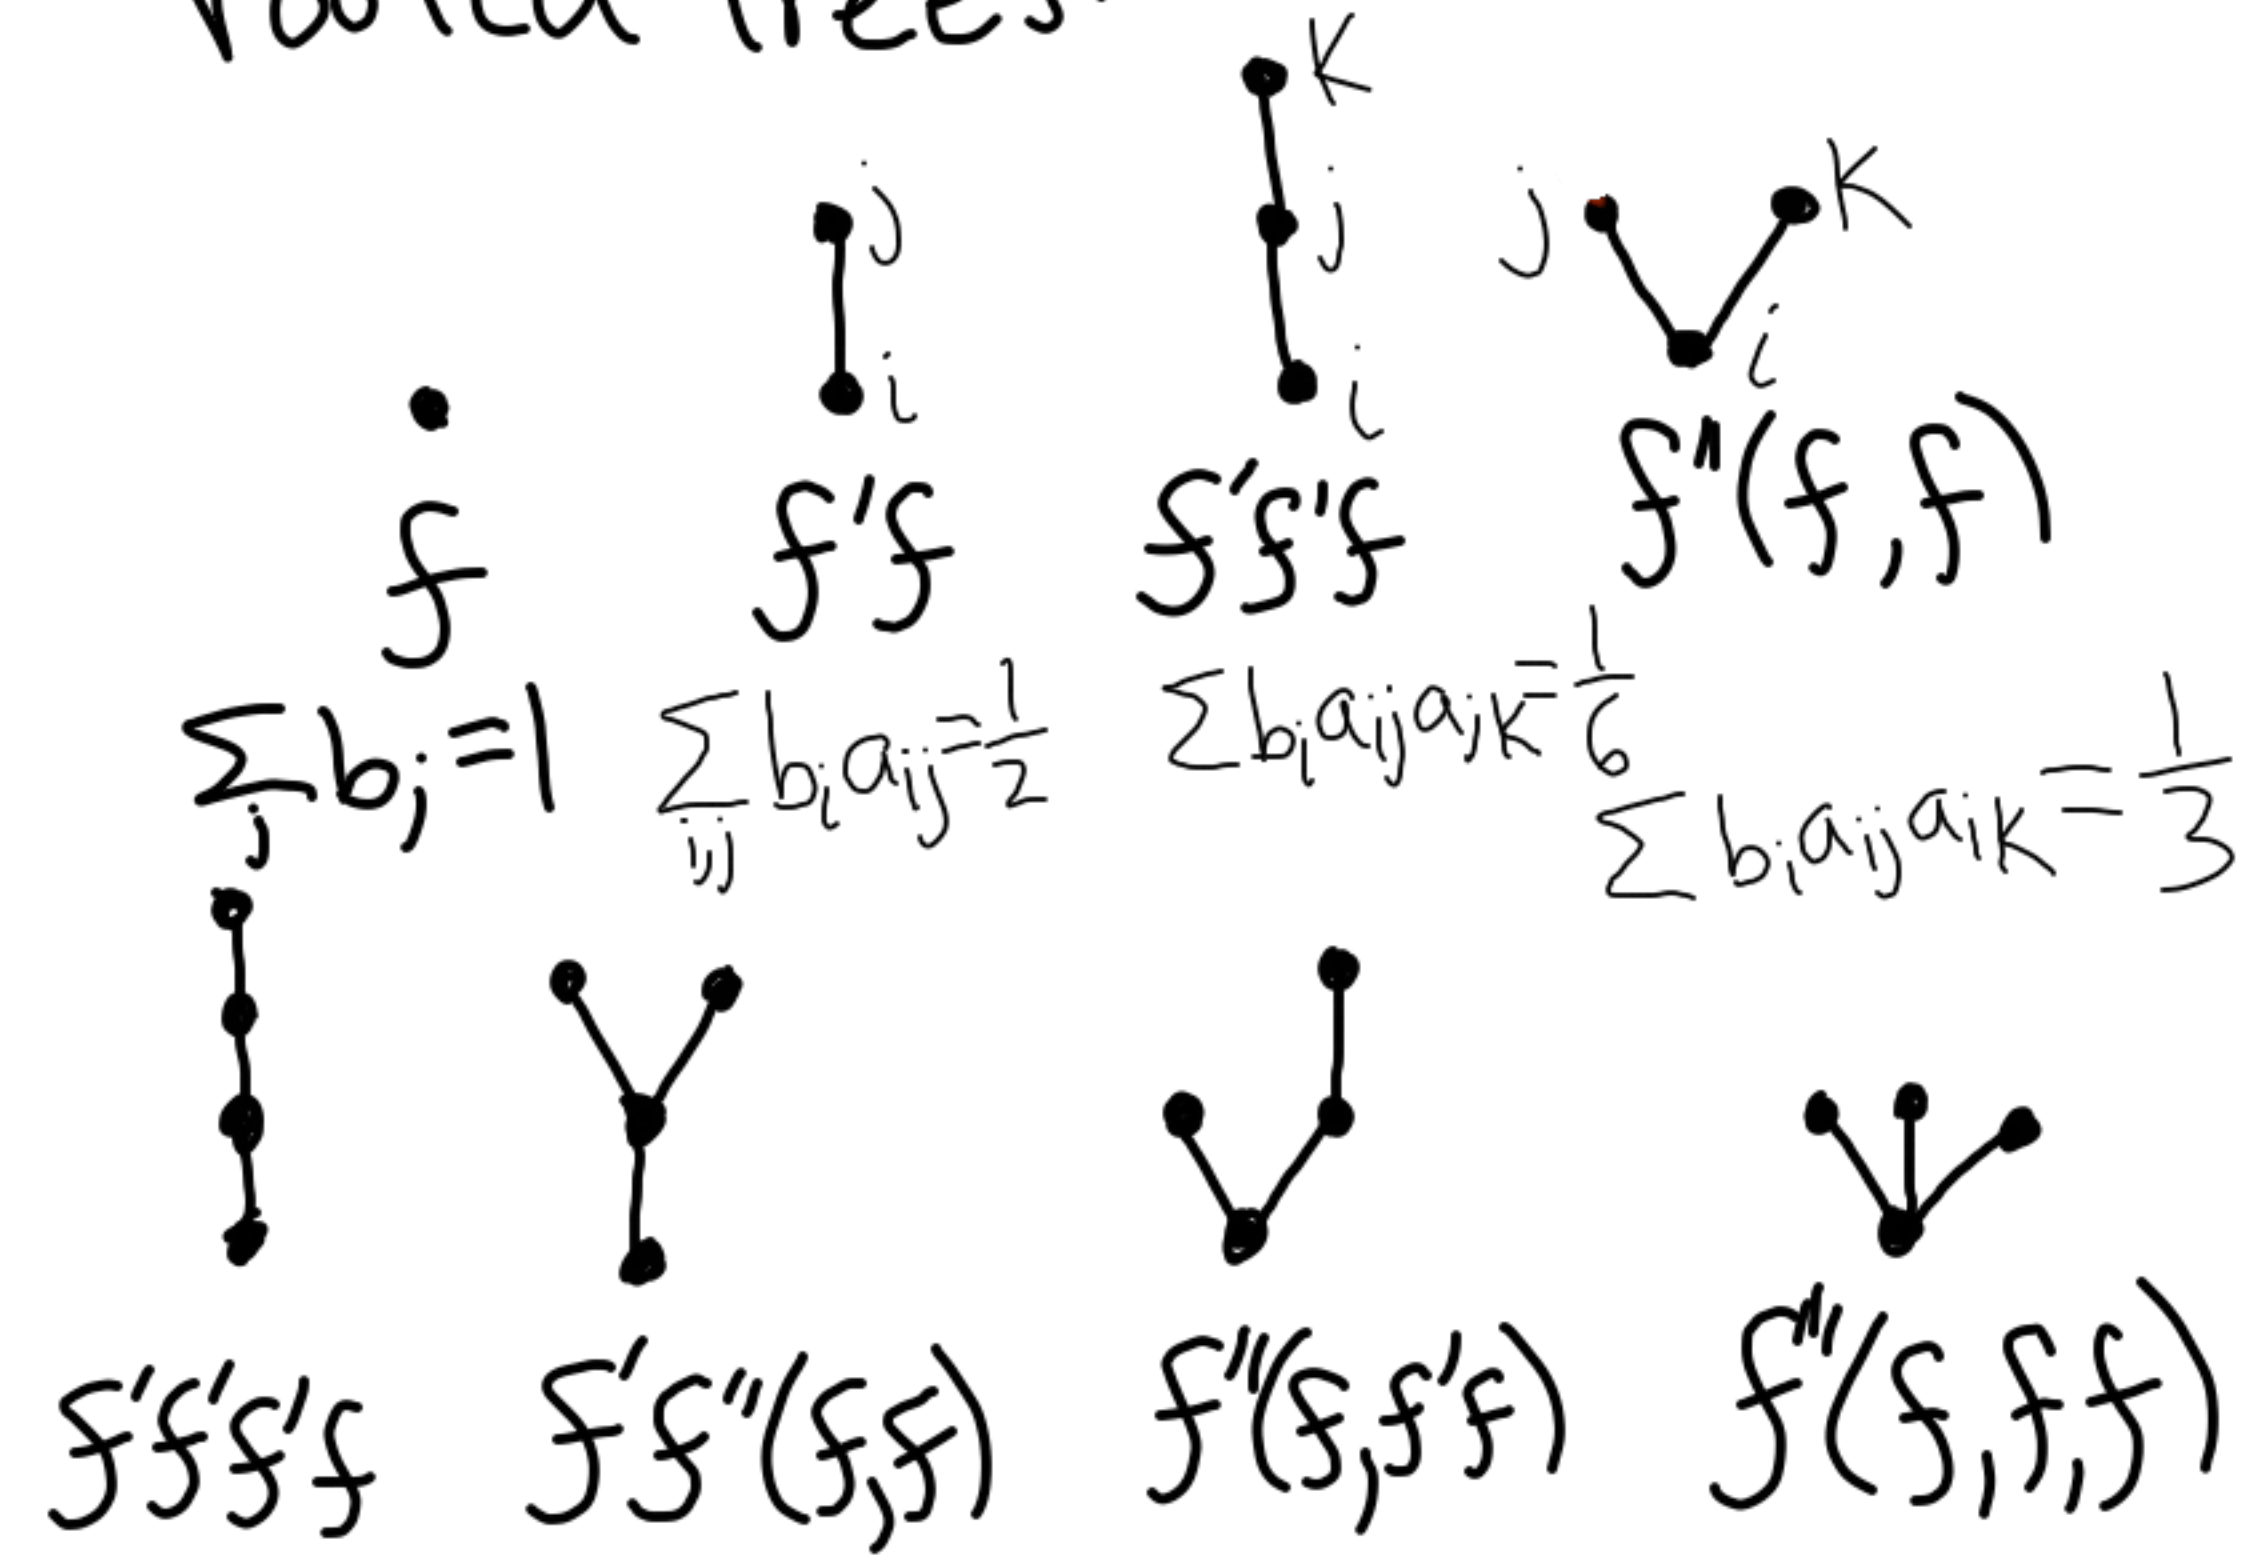 rooted trees.
K
j j j K
i i i
f f'f f'f'f f''(f,f)
∑_j b_j=1 ∑_{i,j} b_i a_ij=1/2 ∑b_i a_ij a_jk=1/6
∑b_i a_ij a_ik=1/3
f'f'f'f f'f''(f,f) f''(f,f'f) f'''(f,f,f)